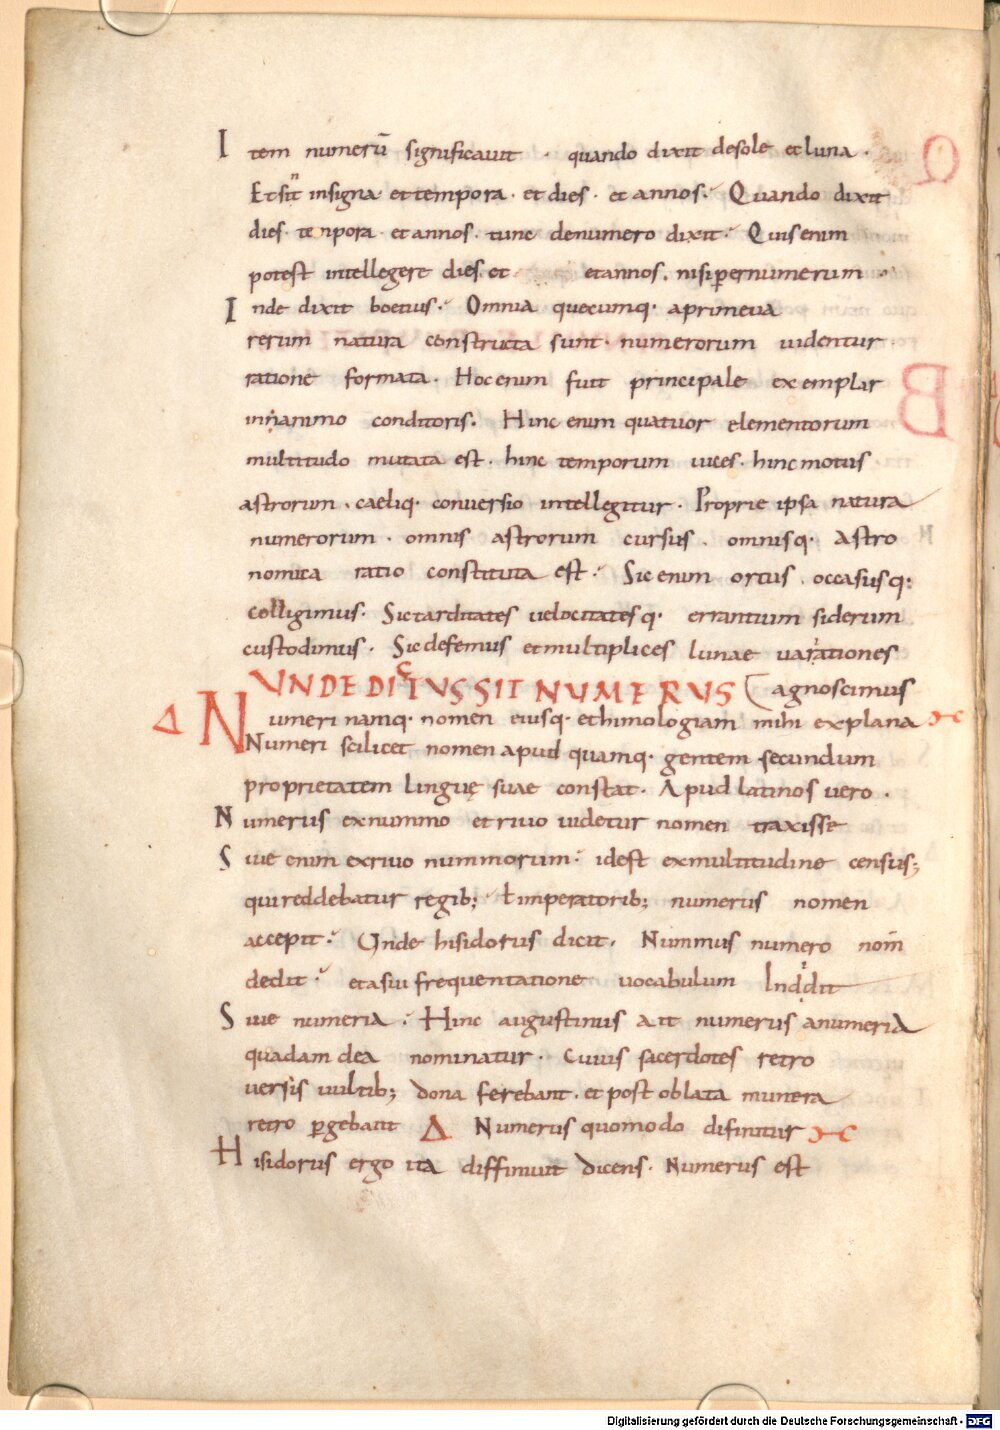 Item numerū significauit · quando dixit desole etluna ·
Etsīt insigna ettempora · et dies · et annos · Quando dixit
dies · tenpora · et annos · tunc denumero dixit · Quisenim
potest intellegere dies et etannos, nisi pernumerum
Inde dixit boetius · Omnia quecumq· aprimeua
rerum natura constructa sunt · numerorum uidentur ·
ratione formata · Hocenim fuit principale exemplar
inanimo conditoris · Hinc enim quatuor elementorum
multitudo mutata est · hinc temporum uices · hincmotus
astrorum · caeliq· conuersio intellegitur · Proprie ipsa natura
numerorum · omnis astrorum cursus · omnisq· astro
nomica ratio constituta est · Sicenim ortus · occasusq:
colligimus · Sictarditates uelocitatesq· errantium siderum
custodimus · Sicdefemus etmultiplices lunae uariationes
UNDE DICTUS SIT NUMERUS agnoscimus
Δ Numeri namq· nomen eiusq· ethimologiam mihi explana
Numeri scilicet nomen apud quamq· gentem secundum
proprietatem linguę suae constat · Apud latinos uero ·
Numerus exnummo etriuo uidetur nomen traxisse
Siue enim exriuo nummorum · idest exmultitudine census;
quireddebatur regib; ł imperatorib; numerus nomen
accepit · Unde hisidorus dicit · Nummus numero nom̄
dedit · etasui frequentatione uocabulum Indidit
Siue numeria · Hinc augustinus ait numerus anumeria
quadam dea nominatur · Cuius sacerdotes retro
uersis uultib; dona ferebant · et post oblata munera
retro ꝑgebant Δ Numerus quomodo difinitur
Hisidorus ergo ita diffiniuit dicens · Numerus est
Q
B
Digitalisierung gefördert durch die Deutsche Forschungsgemeinschaft - DFG